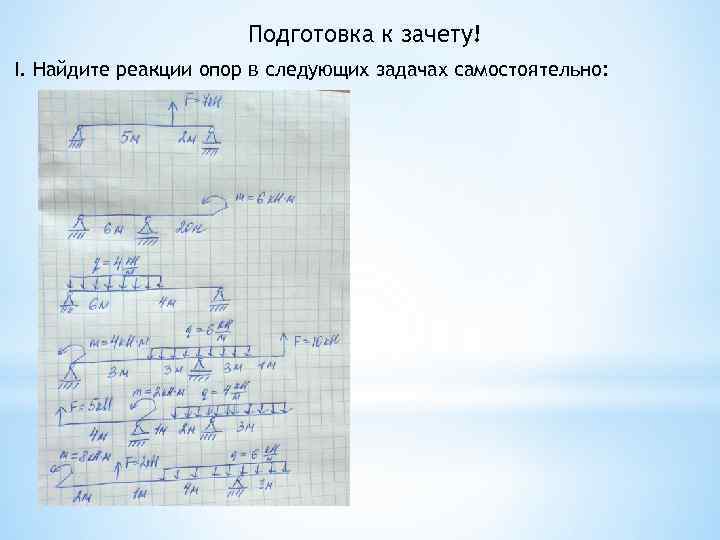 Подготовка к зачету!
I. Найдите реакции опор в следующих задачах самостоятельно:
5м 2м
m=6кН·м
6м
q=4 кН/м
6м 4м
m=4кН·м q=6 кН/м F=10кН
3м 3м 3м 1м
F=5кН m=2кН·м q=4 кН/м
4м 1м 2м 3м
m=8кН·м F=2кН q=6 кН/м
2м 1м 4м